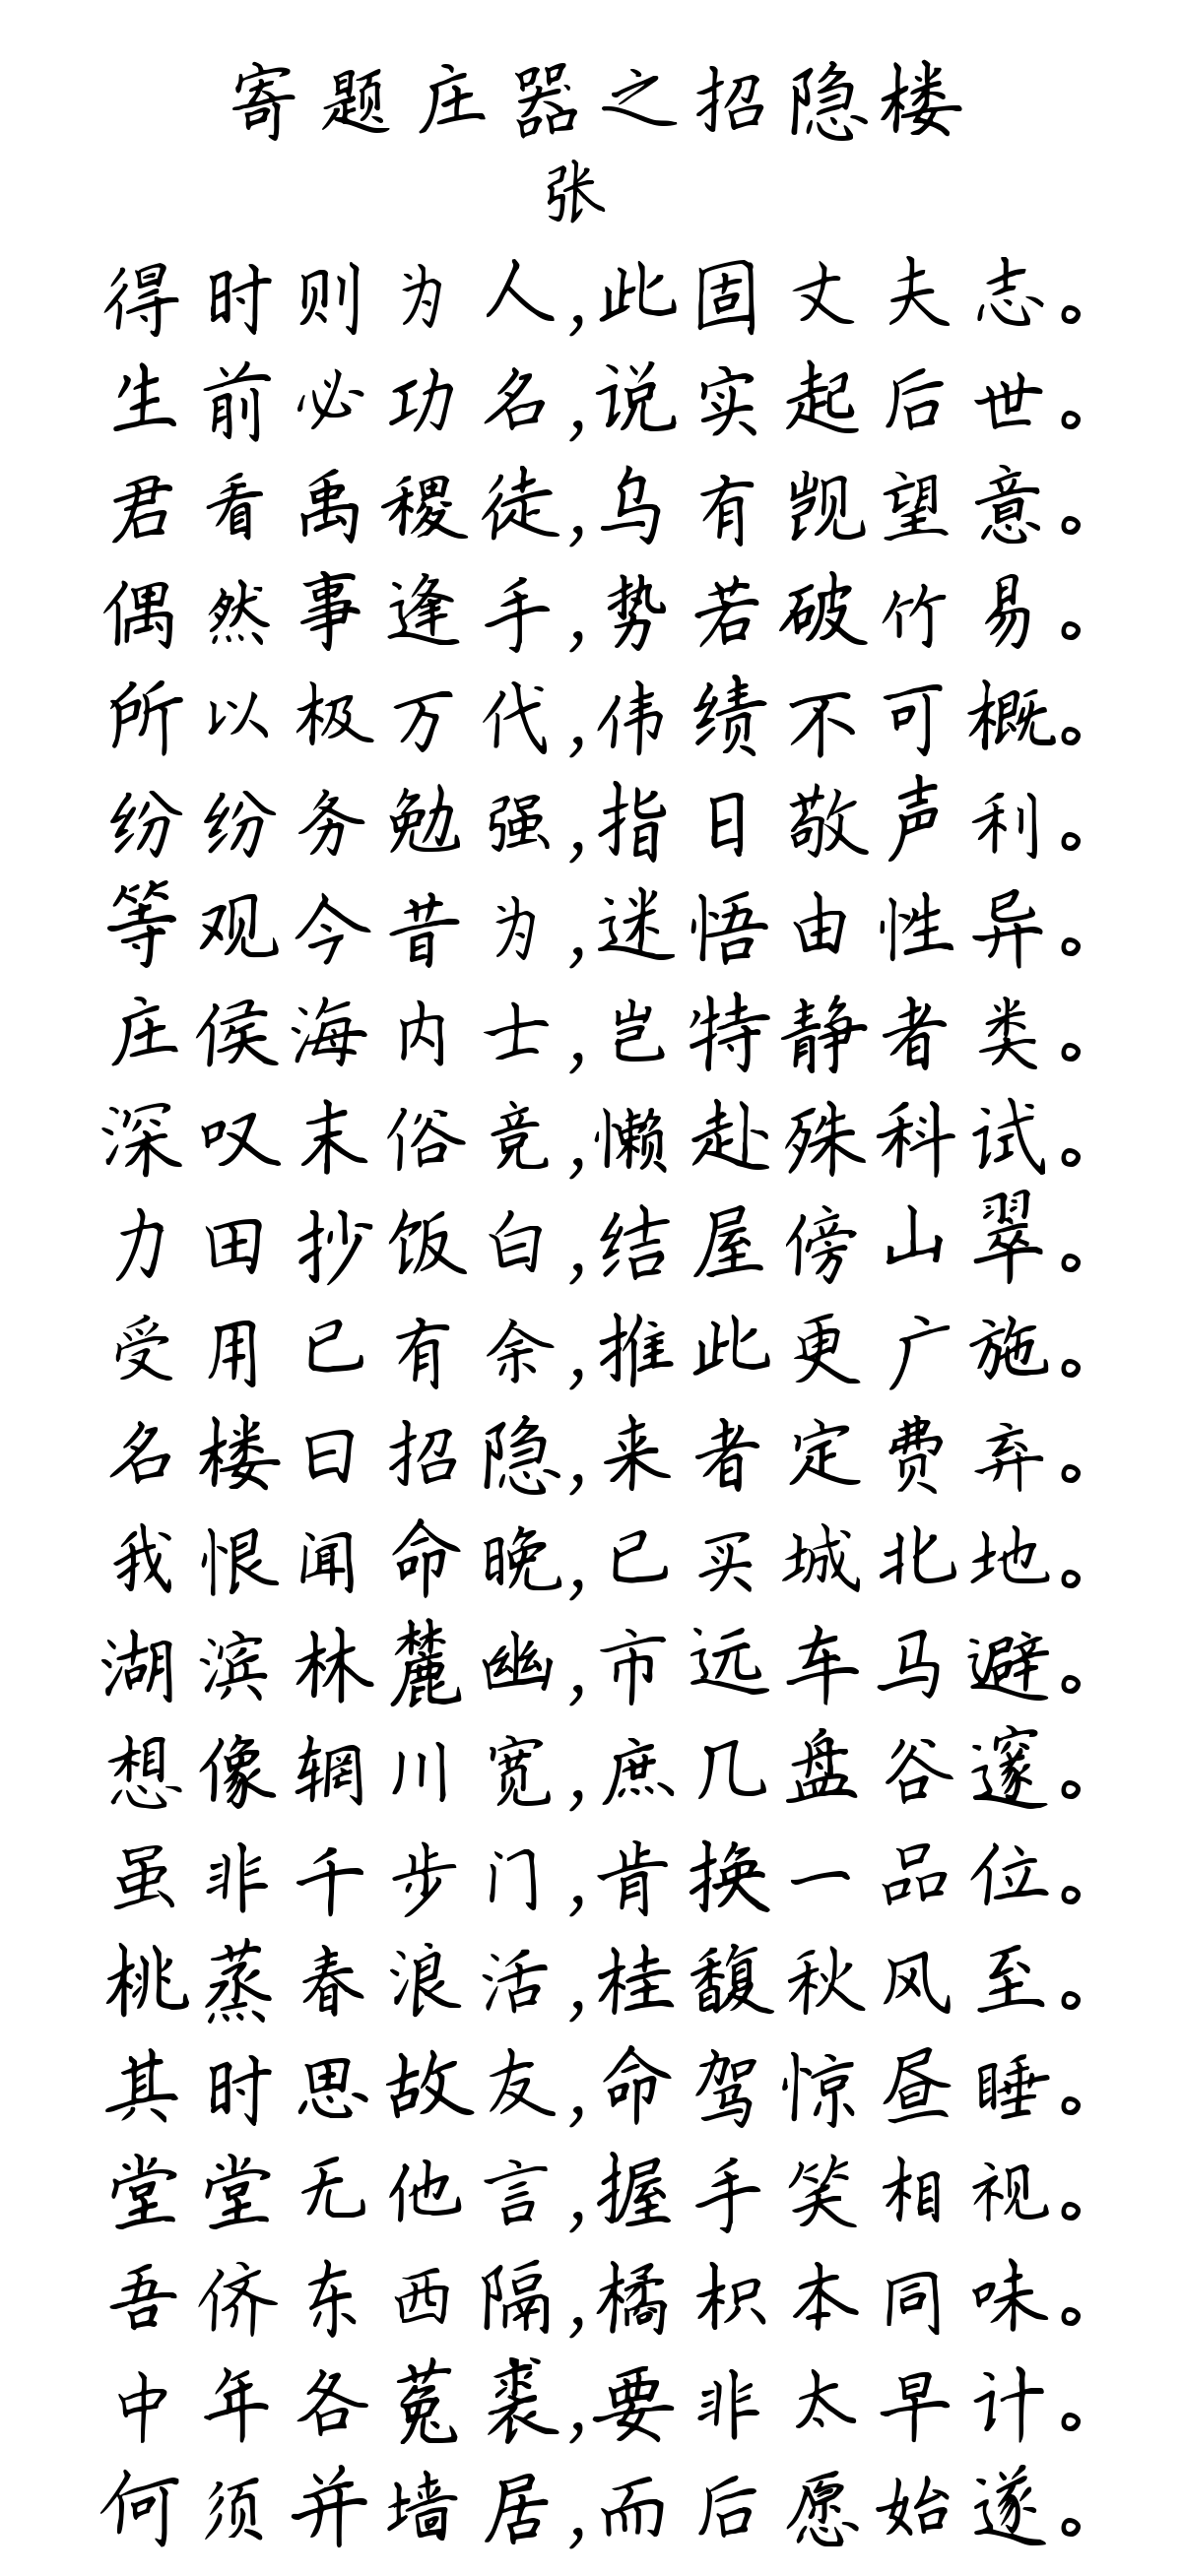 寄题庄器之招隐楼
张
得时则为人,此固丈夫志。
生前必功名,说实起后世。
君看禹稷徒,乌有觊望意。
偶然事逢手,势若破竹易。
所以极万代,伟绩不可概。
纷纷务勉强,指日敬声利。
等观今昔为,迷悟由性异。
庄侯海内士,岂特静者类。
深叹末俗竞,懒赴殊科试。
力田抄饭白,结屋傍山翠。
受用已有余,推此更广施。
名楼曰招隐,来者定费弃。
我恨闻命晚,已买城北地。
湖滨林麓幽,市远车马避。
想像辋川宽,庶几盘谷邃。
虽非千步门,肯换一品位。
桃蒸春浪活,桂馥秋风至。
其时思故友,命驾惊昼睡。
堂堂无他言,握手笑相视。
吾侪东西隔,橘枳本同味。
中年各菟裘,要非太早计。
何须并墙居,而后愿始遂。